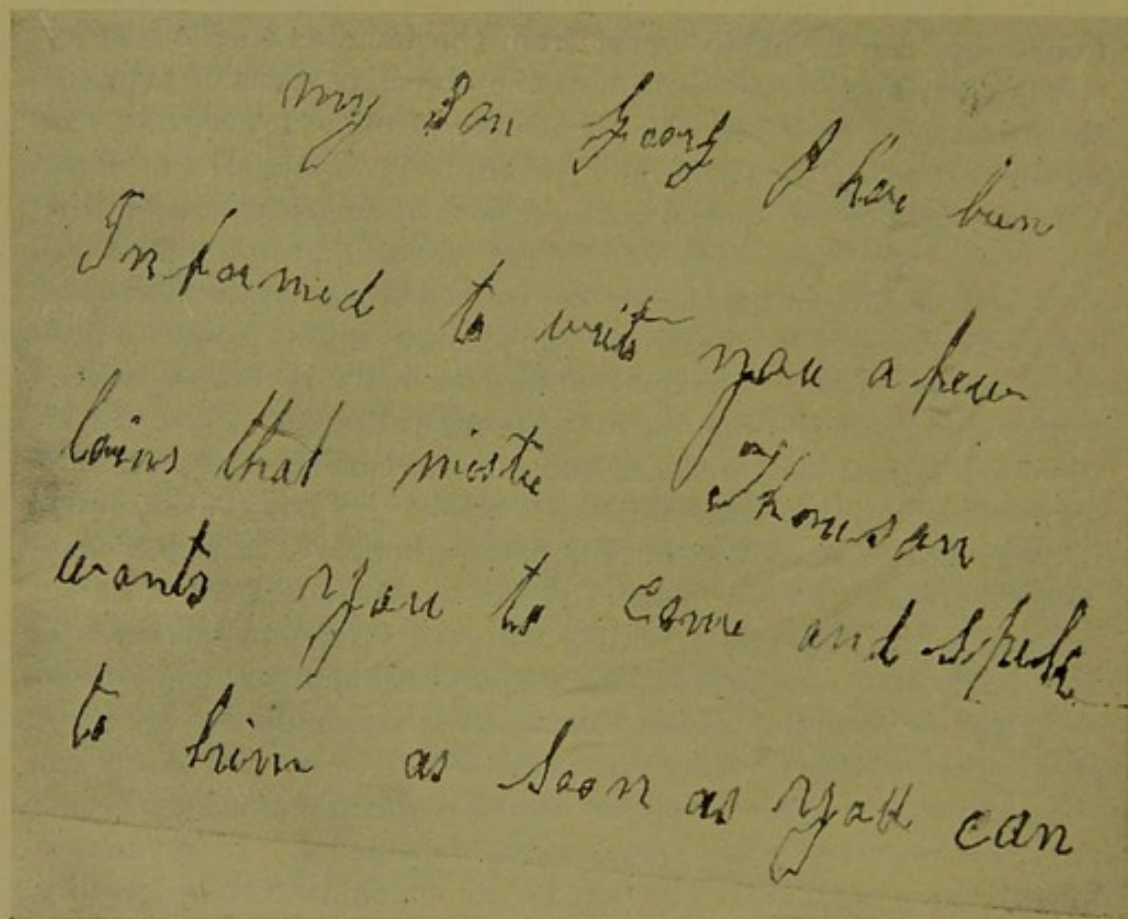 my Son Georg I hav bun
Informed to writ you a few
loins that mistu Thomson
wants you to come and speek
to him as soon as you can